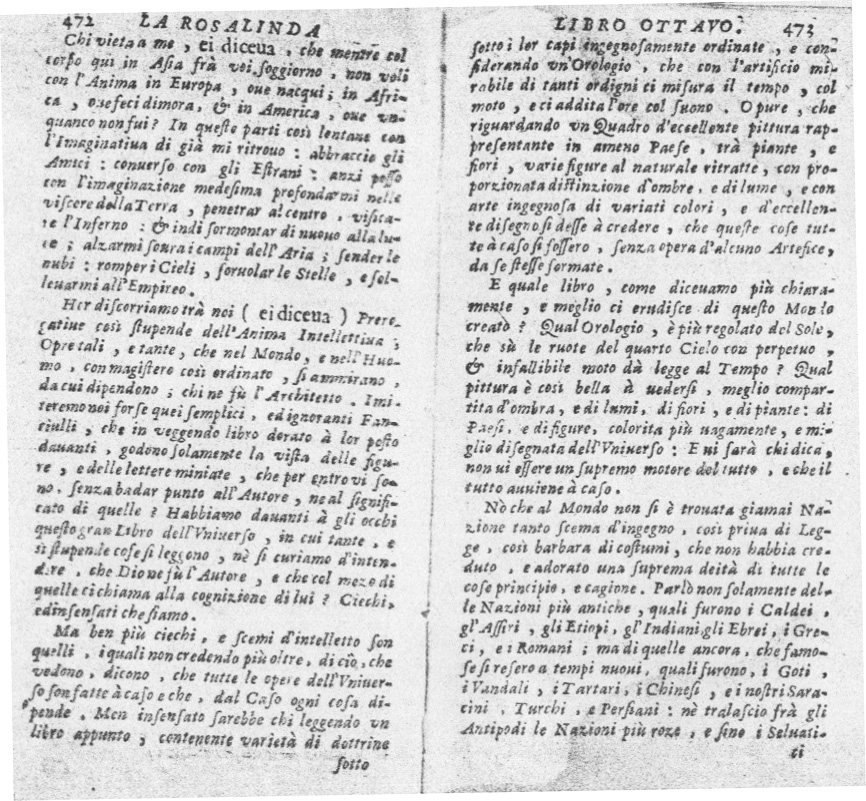 472 LA ROSALINDA
Chi vieta a me, ei diceua, che mentre col
corpo qui in Asia frà voi soggiorno, non voli
con l'Anima in Europa, oue nacqui; in Afri-
ca, oue feci dimora, & in America, oue vn-
quanco non fui? In queste parti così lontane con
l'Imaginatiua di già mi ritrouo: abbraccio gli
Amici: conuerso con gli Estrani: anzi posso
con l'imaginazione medesima profondarmi nelle
viscere della Terra, penetrar al centro, visita-
re l'Inferno: & indi sormontar di nuouo alla lu-
ce; alzarmi soura i campi dell'Aria; fender le
nubi: romper i Cieli, soruolar le Stelle, e sol-
leuarmi all'Empireo.
Hor discorriamo trà noi (ei diceua) Prero-
gatiue così stupende dell'Anima Intellettiua;
Opre tali, e tante, che nel Mondo, e nell'Huo-
mo, con magistero così ordinato, si ammirano,
da cui dipendono; chi ne fù l'Architetto. Imi-
teremo noi forse quei semplici, ed ignoranti Fan-
ciulli, che in veggendo libro dorato à lor posto
dauanti, godono solamente la vista delle figu-
re, e delle lettere miniate, che per entro vi so-
no, senza badar punto all'Autore, ne al signifi-
cato di quelle? Habbiamo dauanti à gli occhi
questo gran Libro dell'Vniuerso, in cui tante, e
sì stupende cose si leggono, nè si curiamo d'inten-
dere, che Dio ne fù l'Autore, e che col mezo di
quelle ci chiama alla cognizione di lui? Ciechi,
ed insensati che siamo.
Ma ben più ciechi, e scemi d'intelletto son
quelli, i quali non credendo più oltre, di ciò, che
vedono, dicono, che tutte le opere dell'Vniuer-
so son fatte à caso e che, dal Caso ogni cosa di-
pende. Men insensato sarebbe chi leggendo vn
libro appunto, contenente varietà di dottrine
sotto
LIBRO OTTAVO. 473
sotto i lor capi ingegnosamente ordinate, e con-
siderando vn'Orologio, che con l'artificio mi-
rabile di tanti ordigni ci misura il tempo, col
moto, e ci addita l'ore col suono. Opure, che
riguardando vn Quadro d'eccellente pittura rap-
presentante in ameno Paese, trà piante, e
fiori, varie figure al naturale ritratte, con pro-
porzionata distinzione d'ombre, e di lume, e con
arte ingegnosa di variati colori, e d'eccellen-
te disegno si desse à credere, che queste cose tut-
te à caso si fossero, senza opera d'alcuno Artefice,
da se stesse formate.
E quale libro, come diceuamo più chiara-
mente, e meglio ci erudisce di questo Mondo
creato? Qual Orologio, è più regolato del Sole,
che sù le ruote del quarto Cielo con perpetuo,
& infallibile moto dà legge al Tempo? Qual
pittura è così bella à uedersi, meglio compar-
tita d'ombra, e di lumi, di fiori, e di piante: di
Paesi, e di figure, colorita più uagamente, e me-
glio disegnata dell'Vniuerso: E ui sarà chi dica,
non ui essere un supremo motore del tutto, e che il
tutto auuiene à caso.
Nò che al Mondo non si è trouata giamai Na-
zione tanto scema d'ingegno, così priua di Leg-
ge, così barbara di costumi, che non habbia cre-
duto, e adorato una suprema deità di tutte le
cose principio, e cagione. Parlò non solamente del-
le Nazioni più antiche, quali furono i Caldei,
gl'Assiri, gli Etiopi, gl'Indiani gli Ebrei, i Gre-
ci, e i Romani; ma di quelle ancora, che famo-
se si resero a tempi nuoui, quali furono, i Goti,
i Vandali, i Tartari, i Chinesi, e i nostri Sara-
cini, Turchi, e Persiani: nè tralascio frà gli
Antipodi le Nazioni più roze, e fino i Seluati-
ci